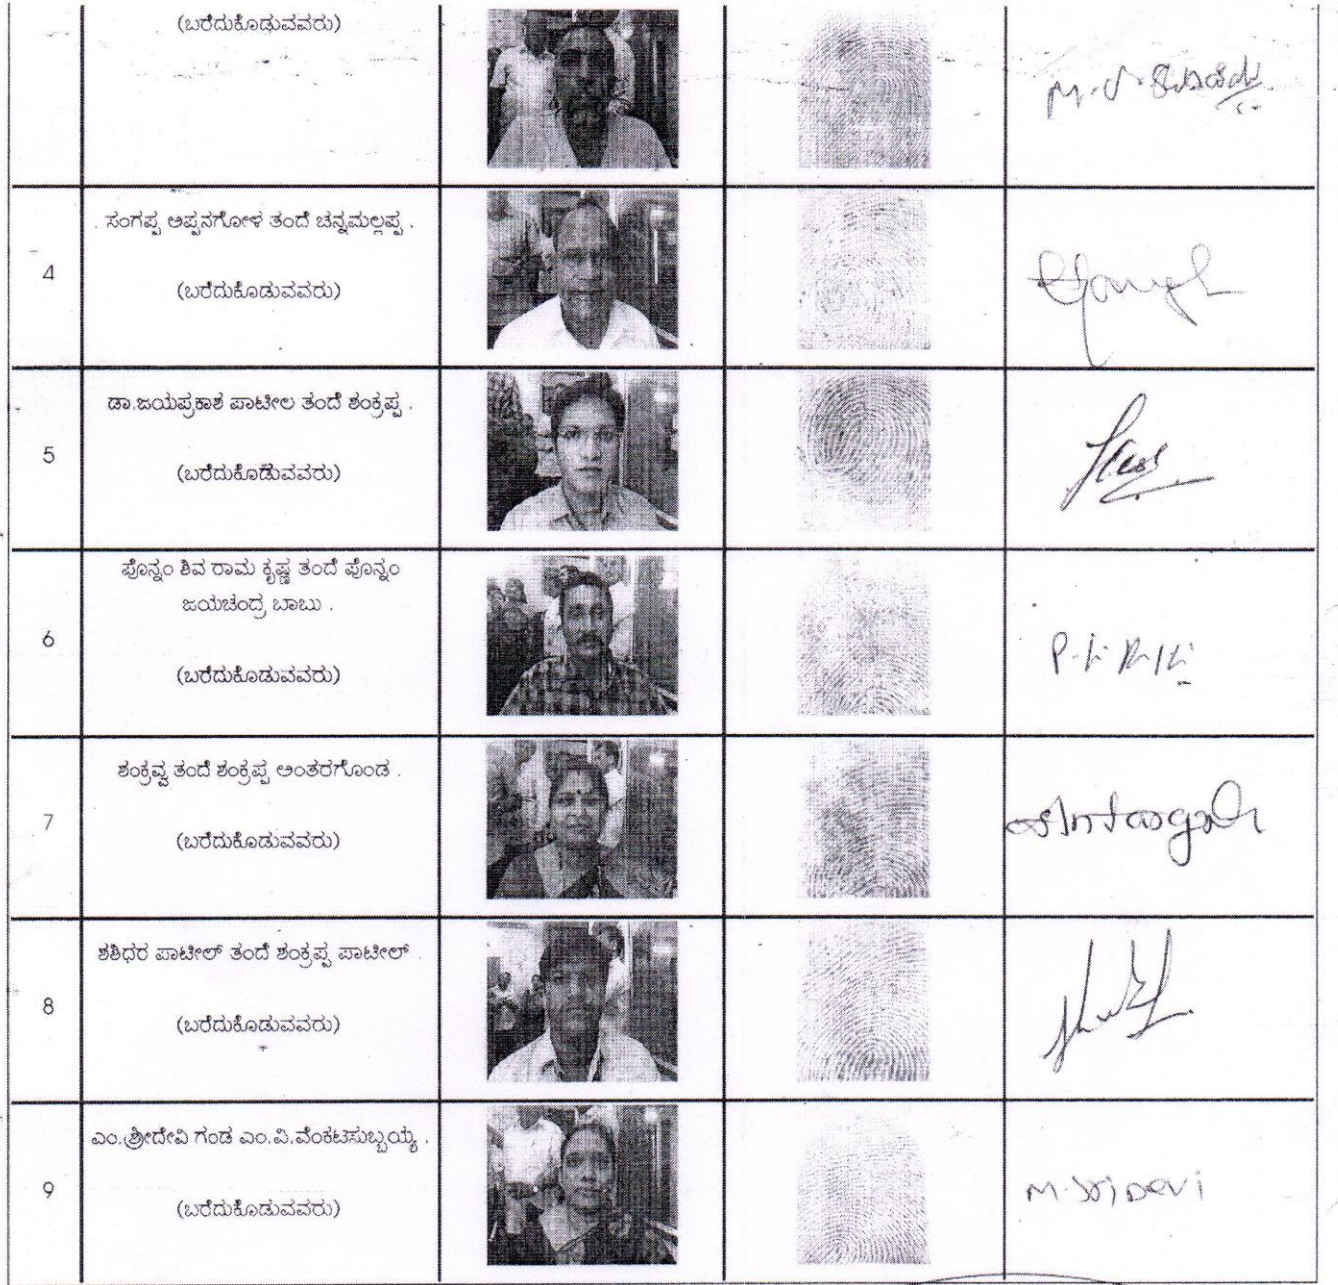 (ಬರೆದುಕೊಡುವವರು)
4
ಸಂಗಪ್ಪ ಅಪ್ಪನಗೋಳ ತಂದೆ ಚನ್ನಮಲ್ಲಪ್ಪ .
(ಬರೆದುಕೊಡುವವರು)
5
ಡಾ.ಜಯಪ್ರಕಾಶ ಪಾಟೀಲ ತಂದೆ ಶಂಕ್ರಪ್ಪ .
(ಬರೆದುಕೊಡುವವರು)
6
ಪೊನ್ನಂ ಶಿವ ರಾಮ ಕೃಷ್ಣ ತಂದೆ ಪೊನ್ನಂ
ಜಯಚಂದ್ರ ಬಾಬು .
(ಬರೆದುಕೊಡುವವರು)
7
ಶಂಕ್ರವ್ವ ತಂದೆ ಶಂಕ್ರಪ್ಪ ಅಂತರಗೊಂಡ .
(ಬರೆದುಕೊಡುವವರು)
8
ಶಶಿಧರ ಪಾಟೀಲ್ ತಂದೆ ಶಂಕ್ರಪ್ಪ ಪಾಟೀಲ್ .
(ಬರೆದುಕೊಡುವವರು)
9
ಎಂ.ಶ್ರೀದೇವಿ ಗಂಡ ಎಂ.ವಿ.ವೆಂಕಟಸುಬ್ಬಯ್ಯ .
(ಬರೆದುಕೊಡುವವರು)
M. Sri Devi